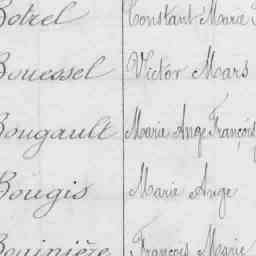 Botrel Constant Marie
Bouessel Victor Mars
Bougault Marie Ange François
Bougis Marie Ange
Bouinière François Marie